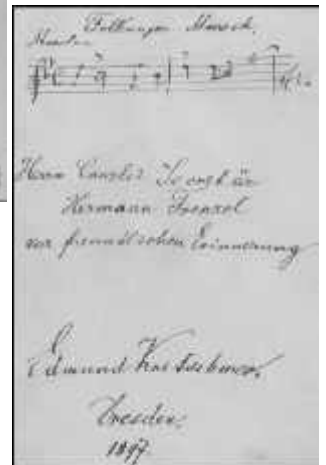 Folkunger Marsch.
Herrn Canzlei Secretär
Hermann Frenzel
zur freundlichen Erinnerung
Edmund Kretschmer.
Dresden,
1897.